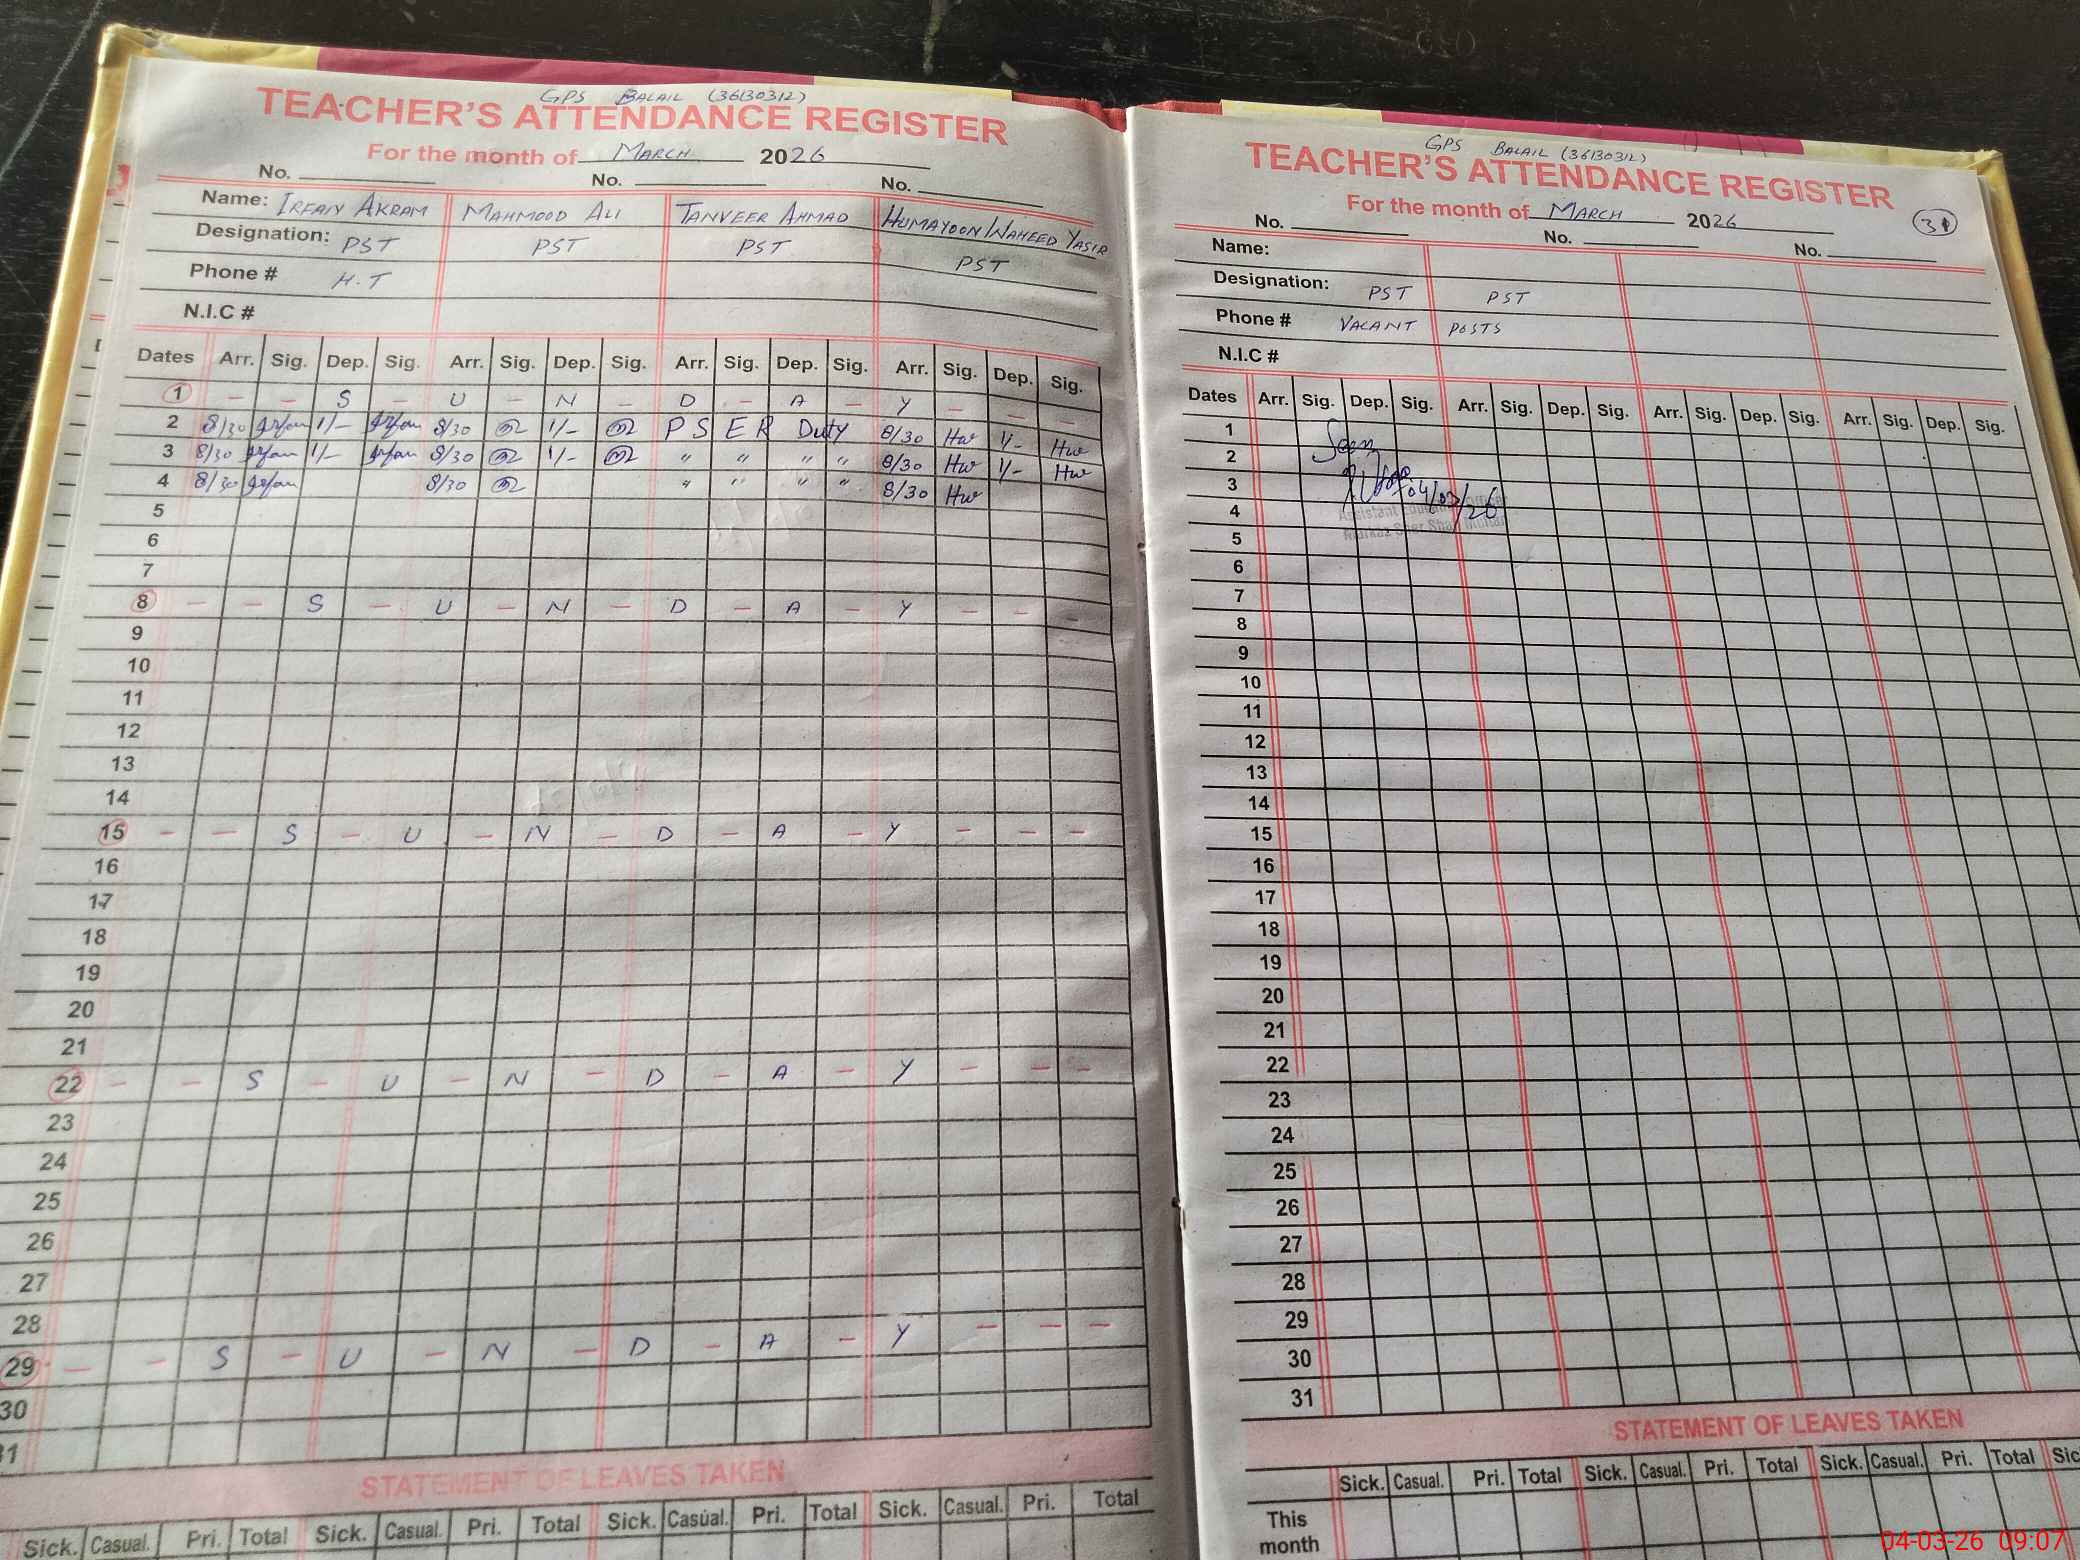 GPS BALAIL (36130312)
TEACHER'S ATTENDANCE REGISTER
For the month of MARCH 2026
No. No. No.
Name: IRFAN AKRAM MAHMOOD ALI TANVEER AHMAD HUMAYOON WAHEED YASIR
Designation: PST PST PST PST
Phone # H.T
N.I.C #
Dates Arr. Sig. Dep. Sig. Arr. Sig. Dep. Sig. Arr. Sig. Dep. Sig. Arr. Sig. Dep. Sig.
1 - - S - U - N - D - A - Y - - -
2 8/30 Irfan 1/- Irfan 8/30 1/- PSER Duty 8/30 Hw 1/- Hw
3 8/30 Irfan 1/- Irfan 8/30 1/- " " " " 8/30 Hw 1/- Hw
4 8/30 Irfan 8/30 " " " " 8/30 Hw
5
6
7
8 - - S - U - N - D - A - Y - - -
9
10
11
12
13
14
15 - - S - U - N - D - A - Y - - -
16
17
18
19
20
21
22 - - S - U - N - D - A - Y - - -
23
24
25
26
27
28
29 - - S - U - N - D - A - Y - - -
30
31
STATEMENT OF LEAVES TAKEN
Sick. Casual. Pri. Total Sick. Casual. Pri. Total Sick. Casual. Pri. Total Sick. Casual. Pri. Total
GPS BALAIL (36130312)
TEACHER'S ATTENDANCE REGISTER
For the month of MARCH 2026 31
No. No. No.
Name:
Designation: PST PST
Phone # VACANT POSTS
N.I.C #
Dates Arr. Sig. Dep. Sig. Arr. Sig. Dep. Sig. Arr. Sig. Dep. Sig. Arr. Sig. Dep. Sig.
1 Seen
2
3 04/03/26
4 Assistant Education Officer
5 Markaz Sher Shah Multan
6
7
8
9
10
11
12
13
14
15
16
17
18
19
20
21
22
23
24
25
26
27
28
29
30
31
STATEMENT OF LEAVES TAKEN
Sick. Casual. Pri. Total Sick. Casual. Pri. Total Sick. Casual. Pri. Total Sic
This
month
04-03-26 09:07